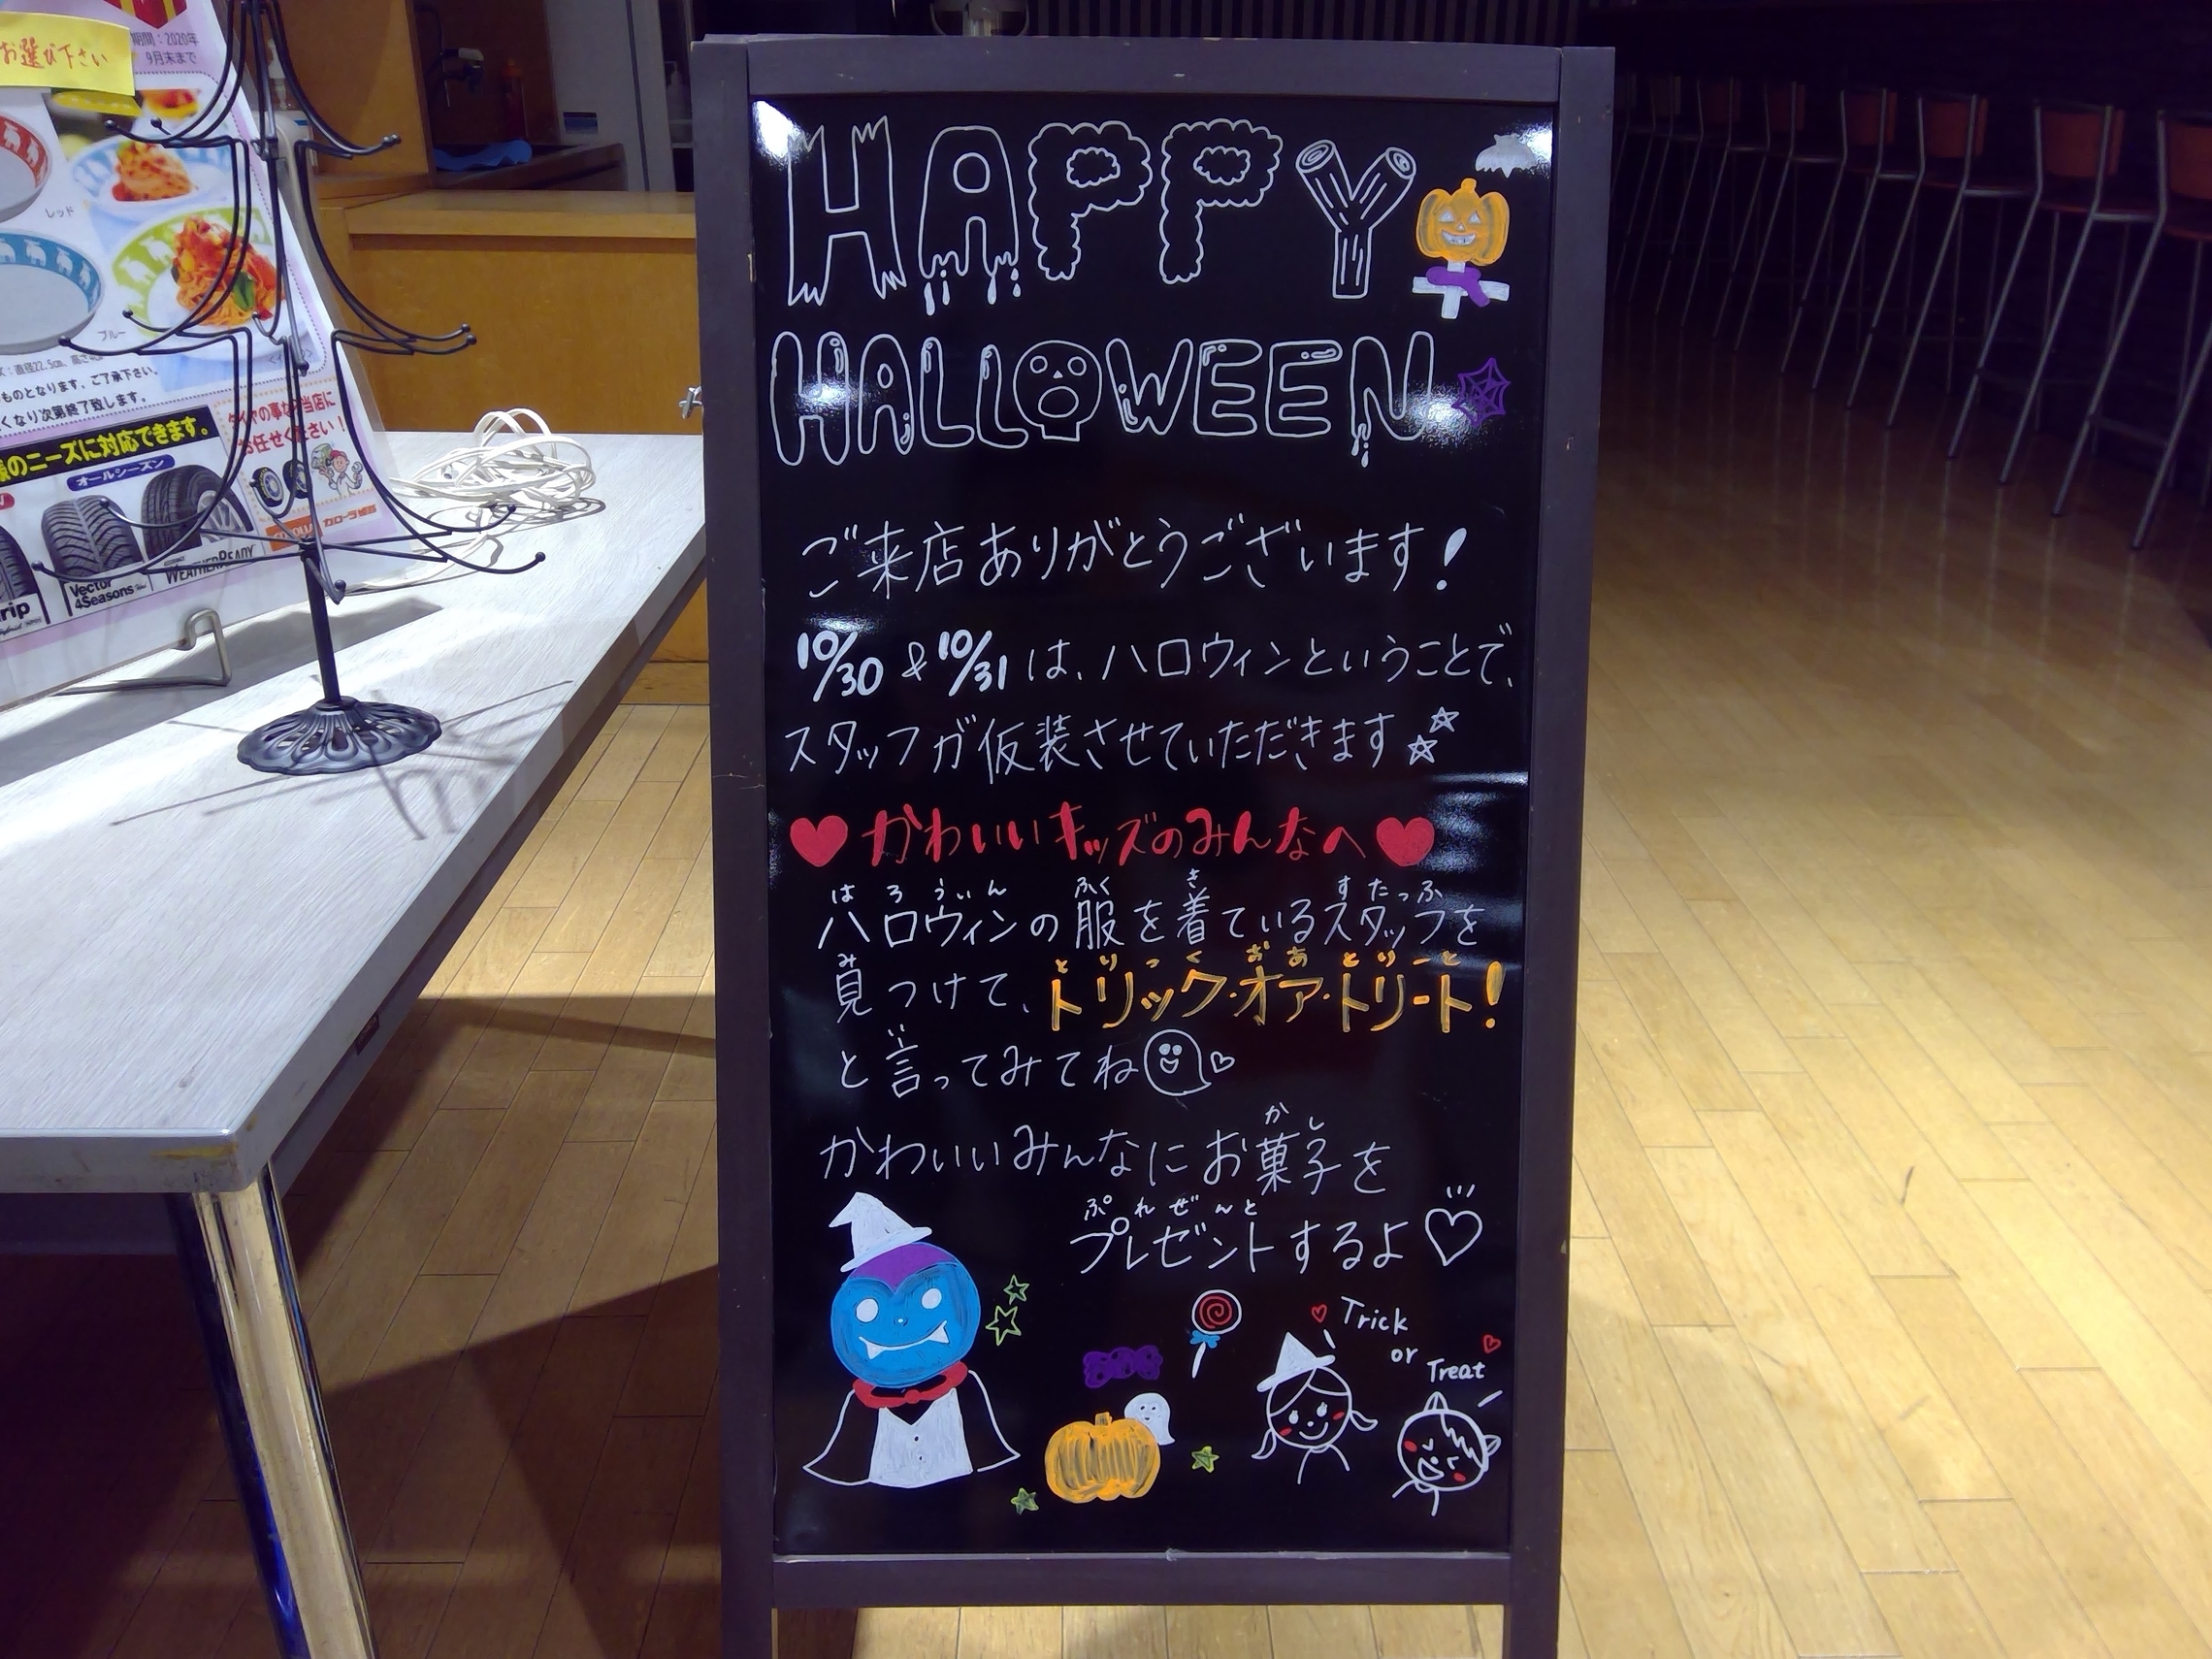 HAPPY
HALLOWEEN
ご来店ありがとうございます!
10/30 & 10/31 は、ハロウィンということで、
スタッフが仮装させていただきます
かわいいキッズのみんなへ
はろうぃん ふく き すたっふ
ハロウィンの服を着ているスタッフを
み とりっくおあとりーと
見つけて、トリック・オア・トリート!
い
と言ってみてね
かし
かわいいみんなにお菓子を
ぷれぜんと
プレゼントするよ
Trick
or
Treat
お選び下さい
期間:2020年
9月末まで
レッド
ブルー
直径22.5cm、高さ
ものとなります。ご了承下さい。
くなり次第終了致します。
のニーズに対応できます。
オールシーズン
タイヤの事なら当店に
お任せください!
カローラ姫路
WEATHERREADY
Vector
4Seasons
rip